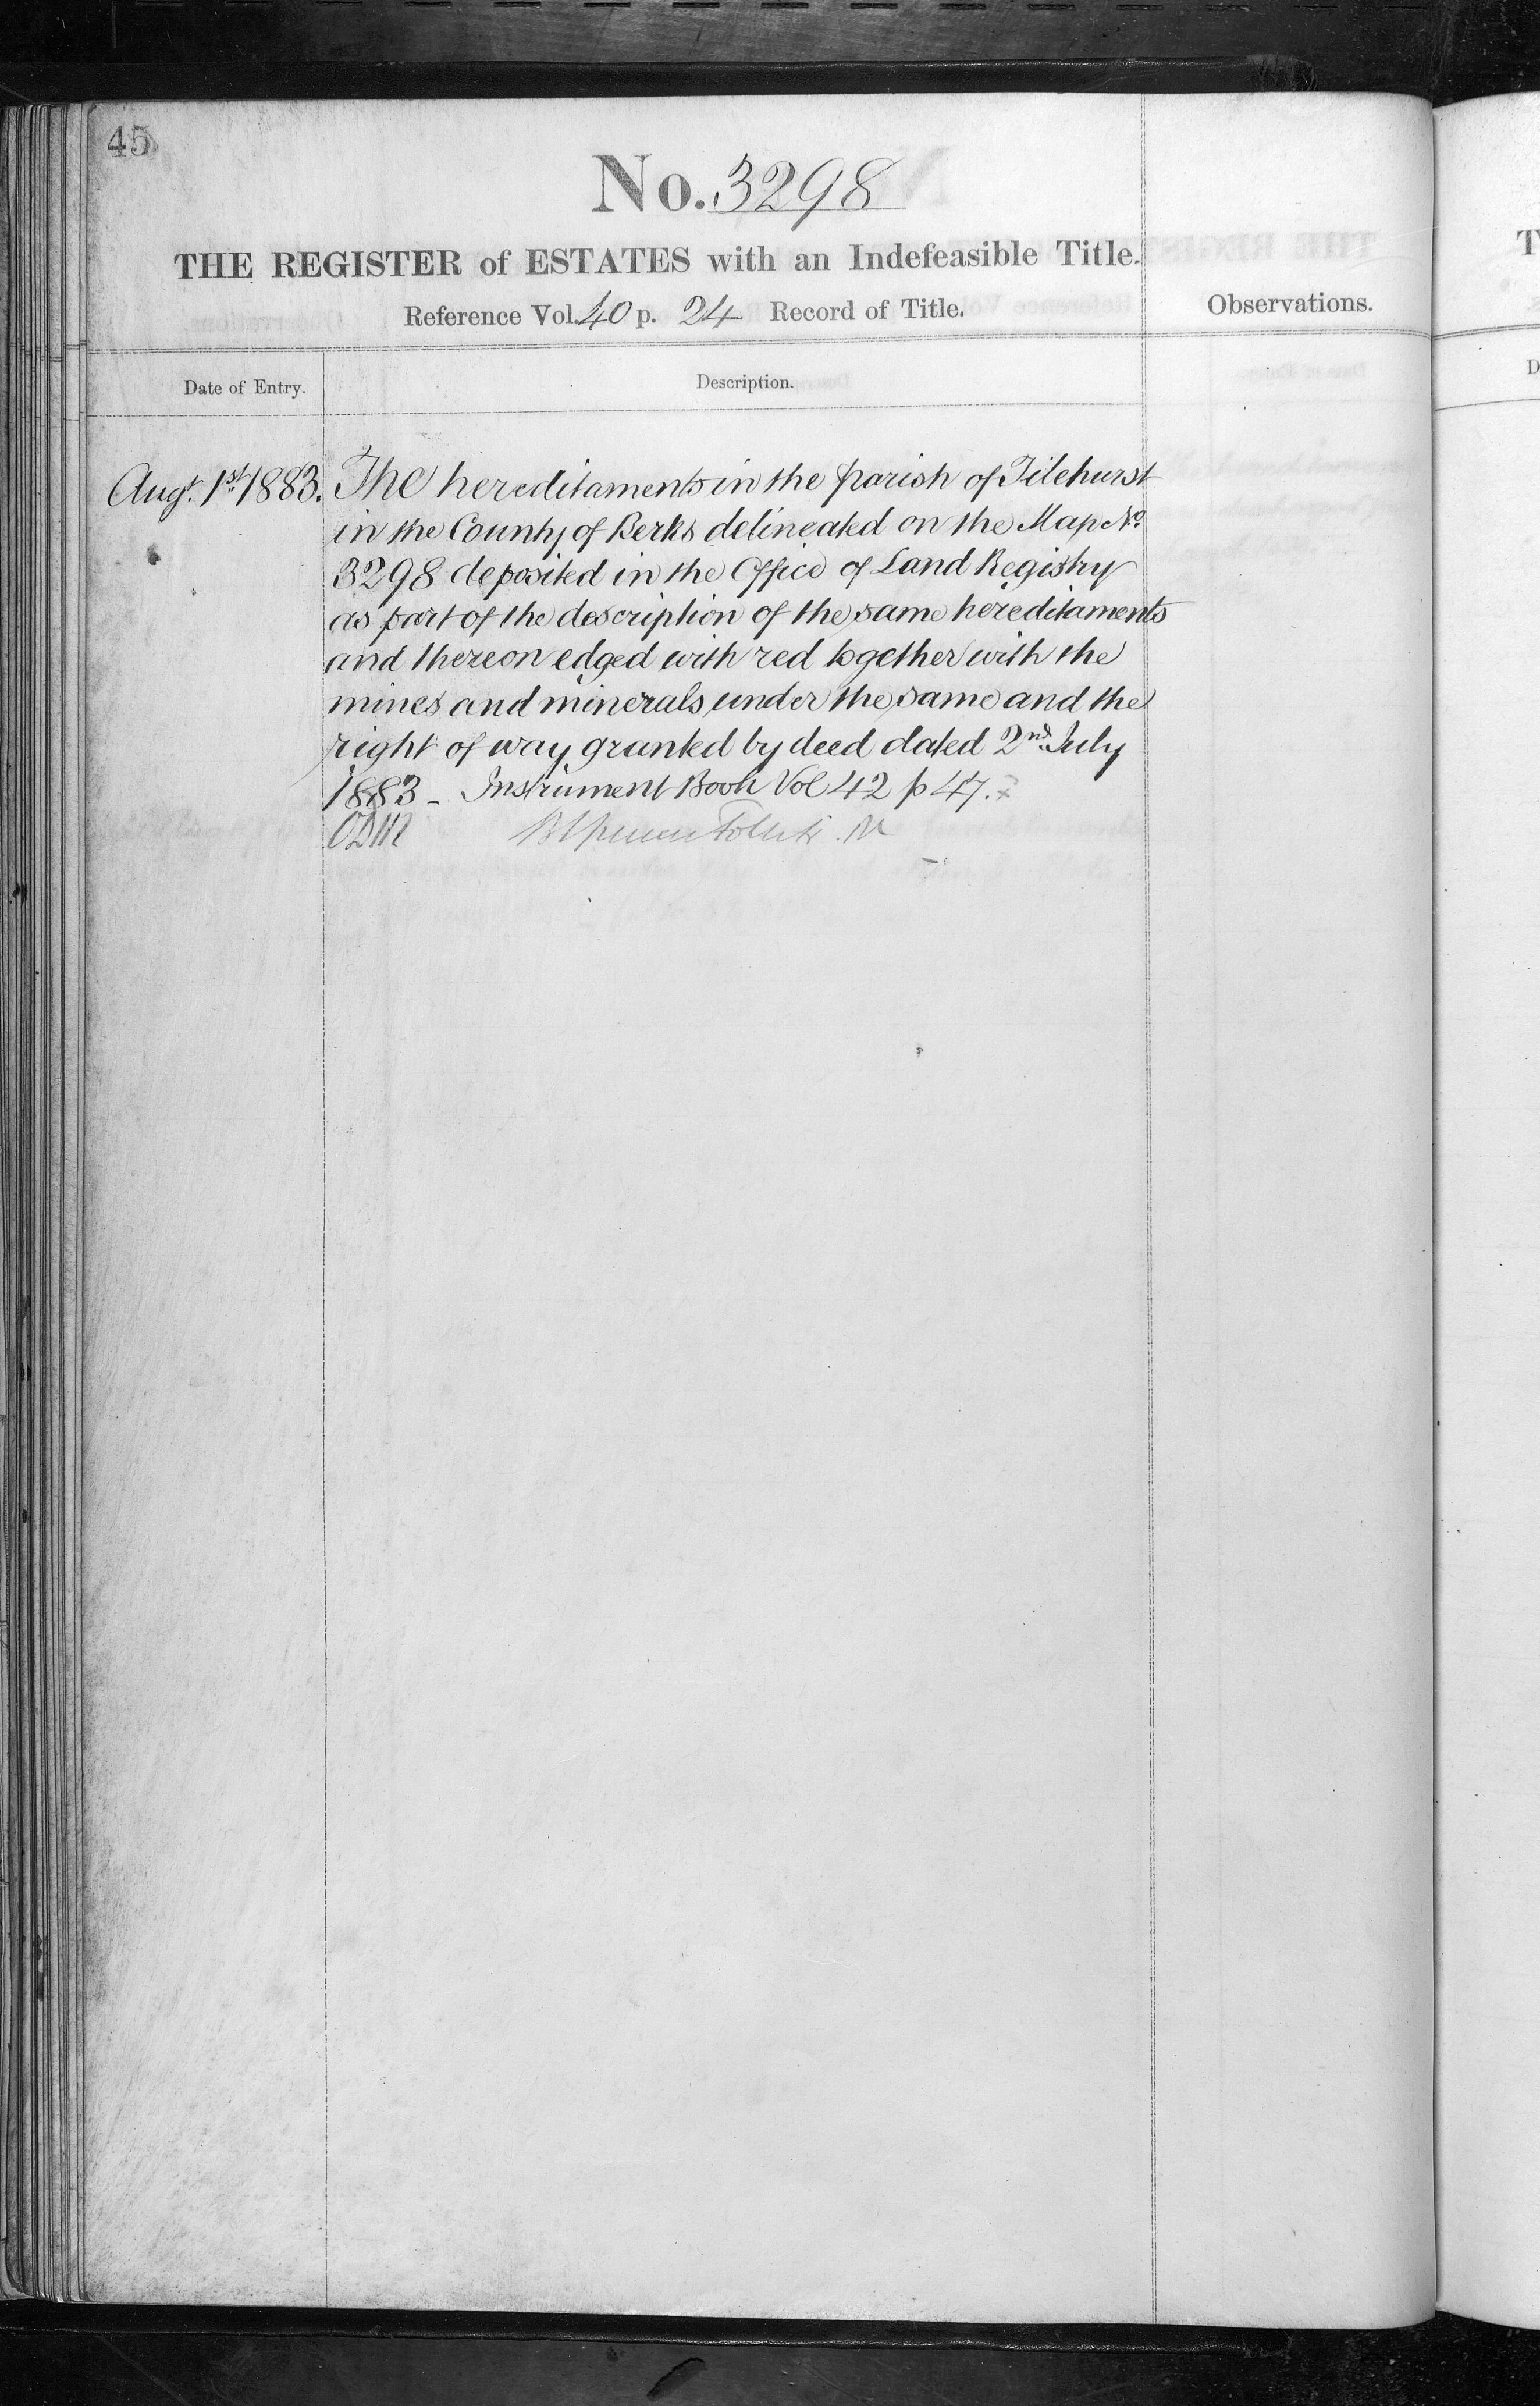 45
No. 3298
THE REGISTER of ESTATES with an Indefeasible Title.
Reference Vol. 40 p. 24 Record of Title.
Observations.
Date of Entry.
Description.
Augt. 1st. 1883.
The hereditaments in the parish of Tilehurst
in the County of Berks delineated on the Map No.
3298 deposited in the Office of Land Registry
as part of the description of the same hereditaments
and thereon edged with red together with the
mines and minerals under the same and the
right of way granted by deed dated 2nd. July
1883 - Instrument Book Vol 42 p 47.